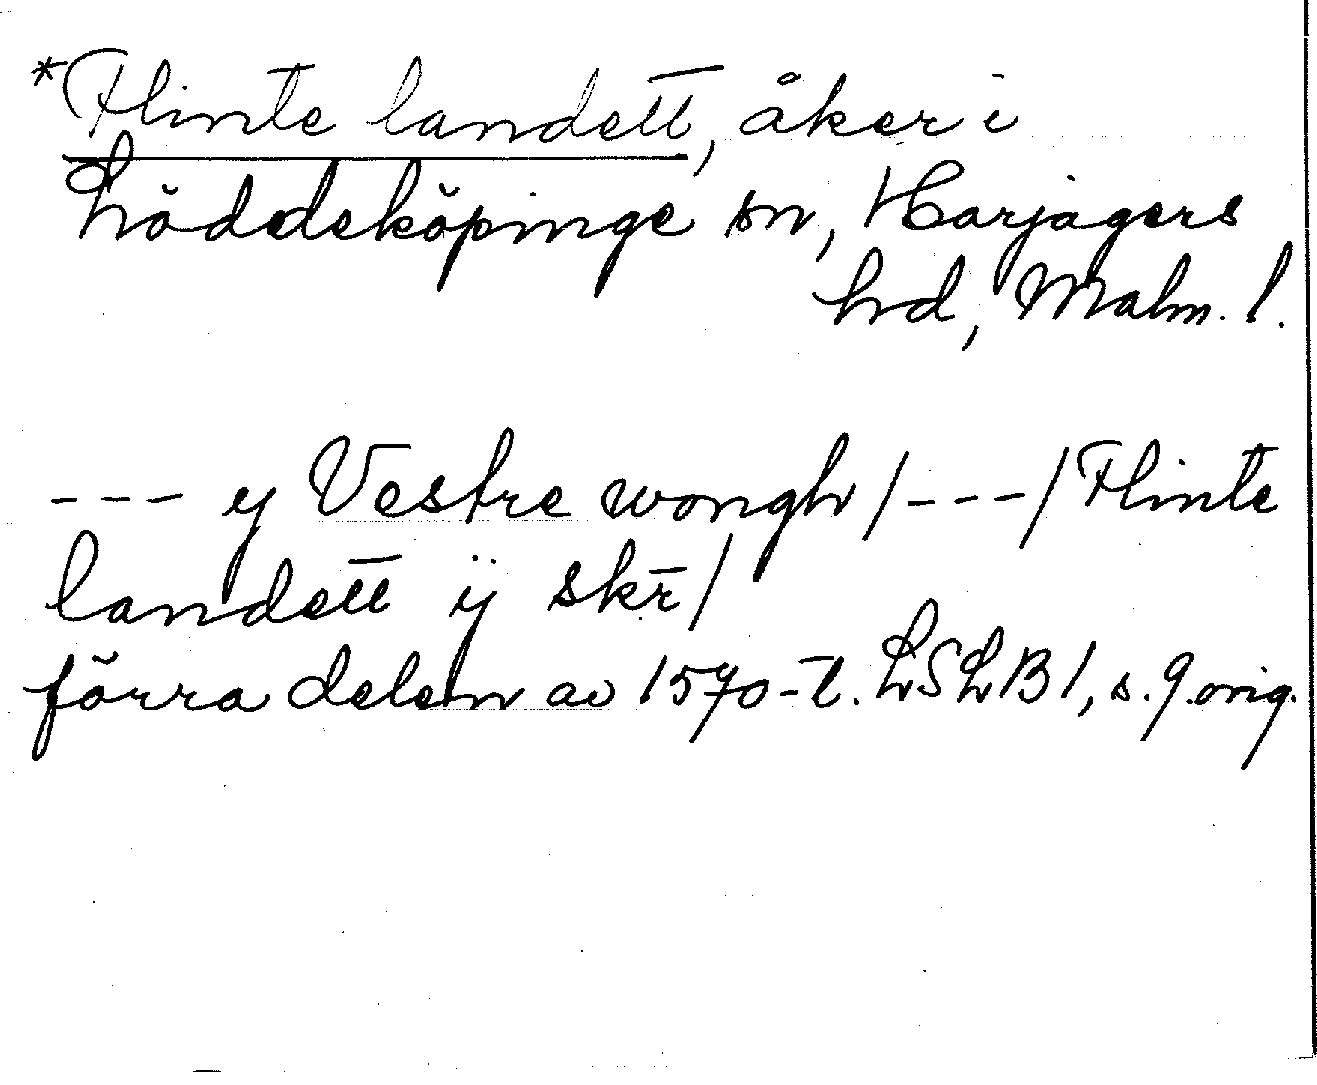 *Flinte landett, åker i
Löddeköpinge sn, Harjagers
hd, Malm. l.
--- y Vestre wongh /---/ Flinte
landett ÿ skr̄/
förra delen av 1570-t. LSLB 1, s. 9. orig.